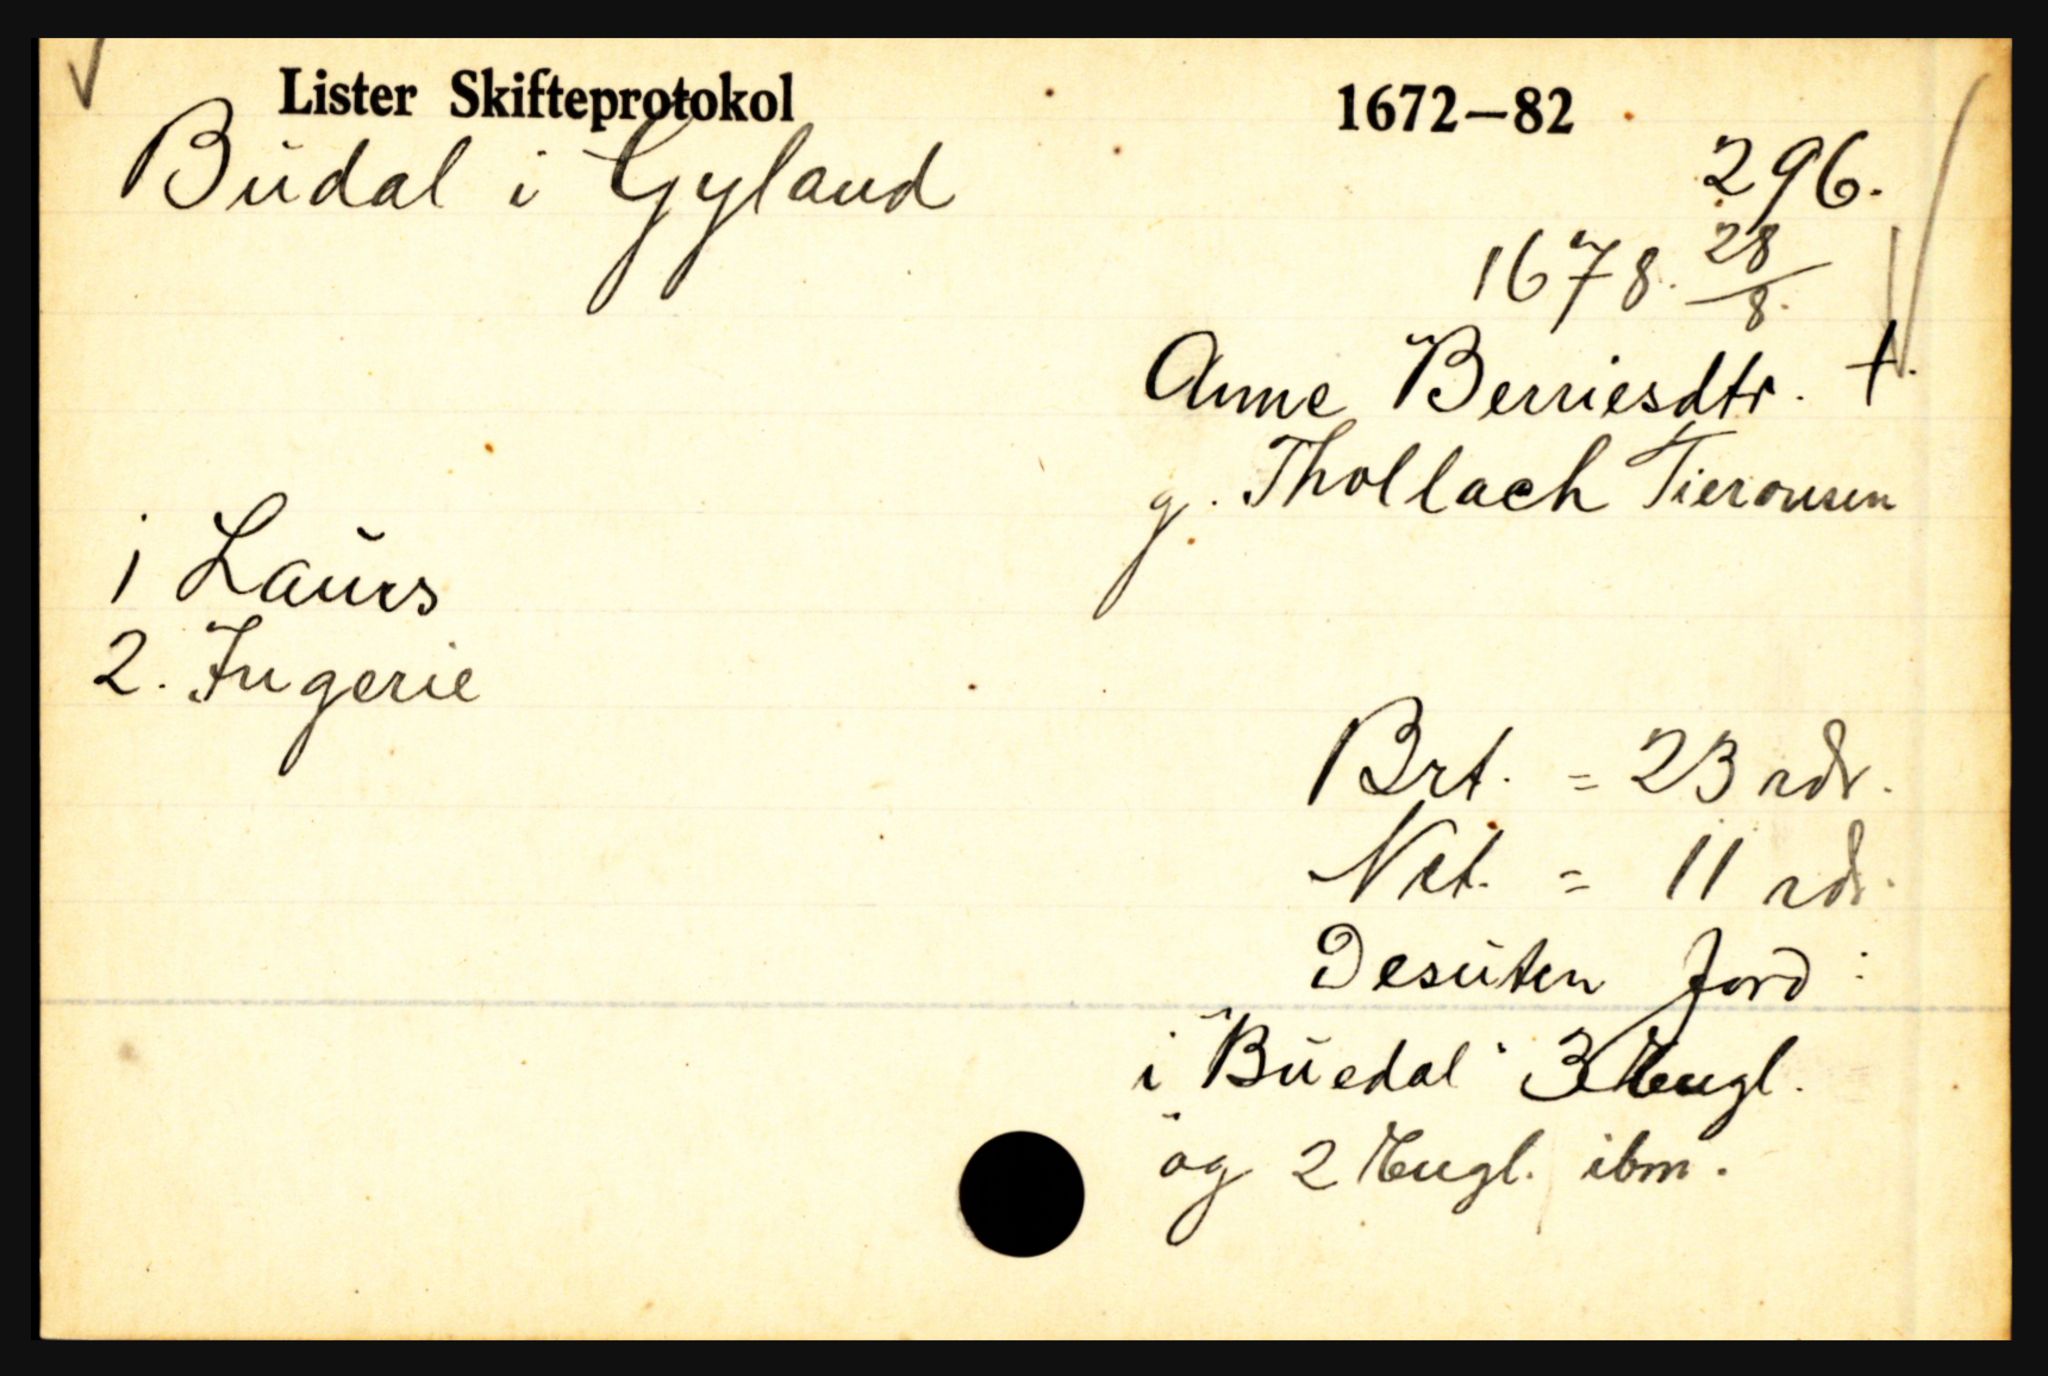 Lister Skifteprotokol 1672–82
Büdal i Gyland 296.
1678. 28/8.
Anne Berriesdtr. †.
g. Thollach Tieronsen
1 Laurs
2. Ingerie
Brt. = 23 rdr.
Net. = 11 rdr.
Desüten Jord :
i "Büedal" 3 Eugl.
og 2 Eugl. ibm.